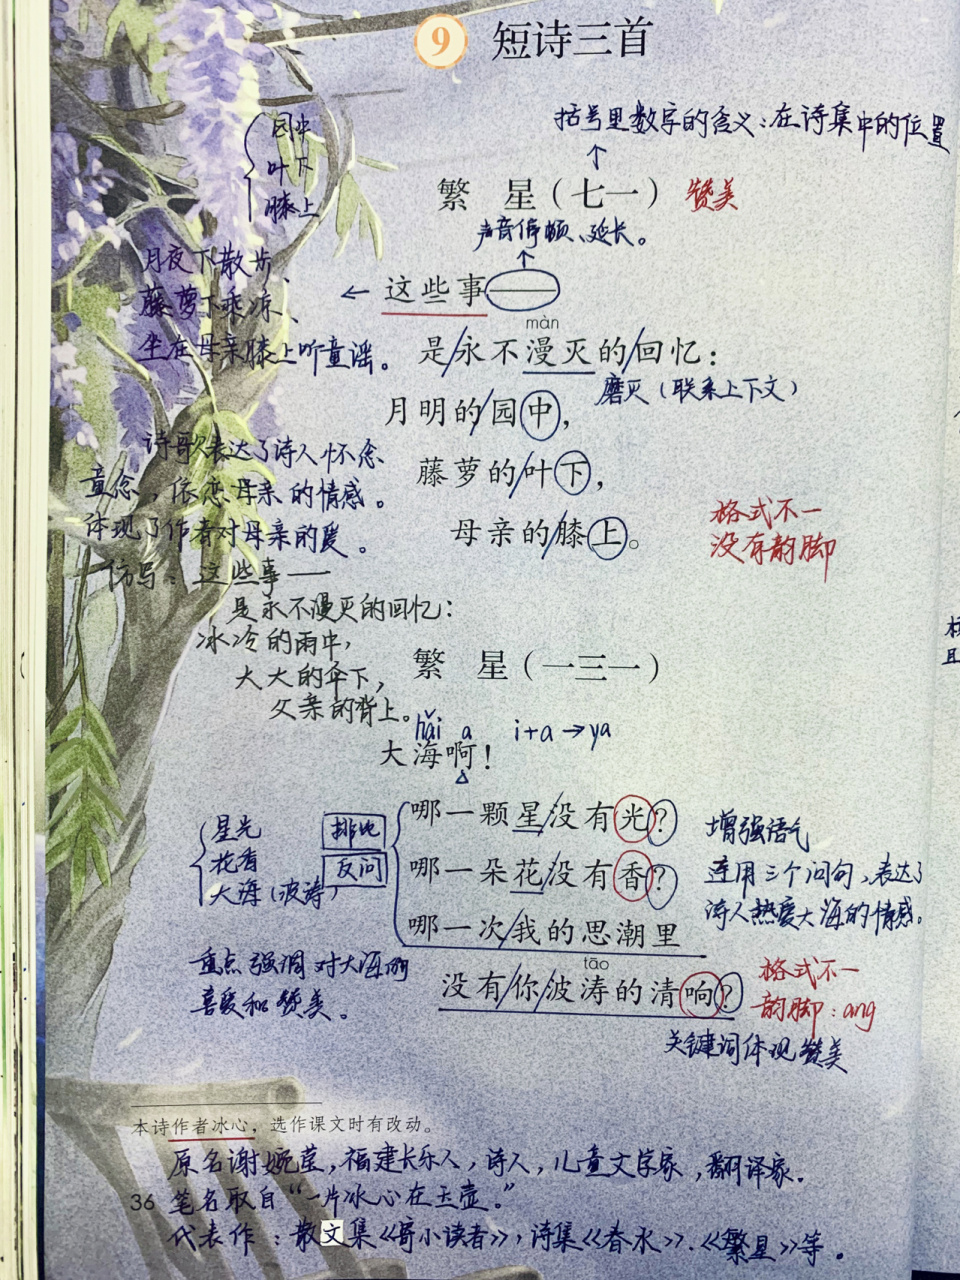 9 短诗三首
括号里数字的含义：在诗集中的位置
园中
叶下
膝上
繁 星（七一） 赞美
声音停顿、延长。
月夜下散步、
藤萝下乘凉、
坐在母亲膝上听童谣。
这些事——
màn
是/永不漫灭的/回忆：
磨灭（联系上下文）
月明的/园中，
藤萝的/叶下，
母亲的/膝上。
诗歌表达了诗人怀念
童念，依恋母亲的情感。
体现了作者对母亲的爱。
格式不一
没有韵脚
仿写：这些事——
是永不漫灭的回忆：
冰冷的雨中，
大大的伞下，
父亲的背上。
繁 星（一三一）
hǎi a i+a→ya
大海啊！
哪一颗星/没有光？
哪一朵花/没有香？
哪一次/我的思潮里
tāo
没有/你/波涛的清响？
星光
花香
大海（波涛）
排比
反问
增强语气
连用三个问句，表达了
诗人热爱大海的情感。
重点强调对大海的
喜爱和赞美。
格式不一
韵脚：ang
关键词体现赞美
本诗作者冰心，选作课文时有改动。
原名谢婉莹，福建长乐人，诗人，儿童文学家，翻译家.
36 笔名取自“一片冰心在玉壶。”
代表作：散文集《寄小读者》，诗集《春水》.《繁星》等。